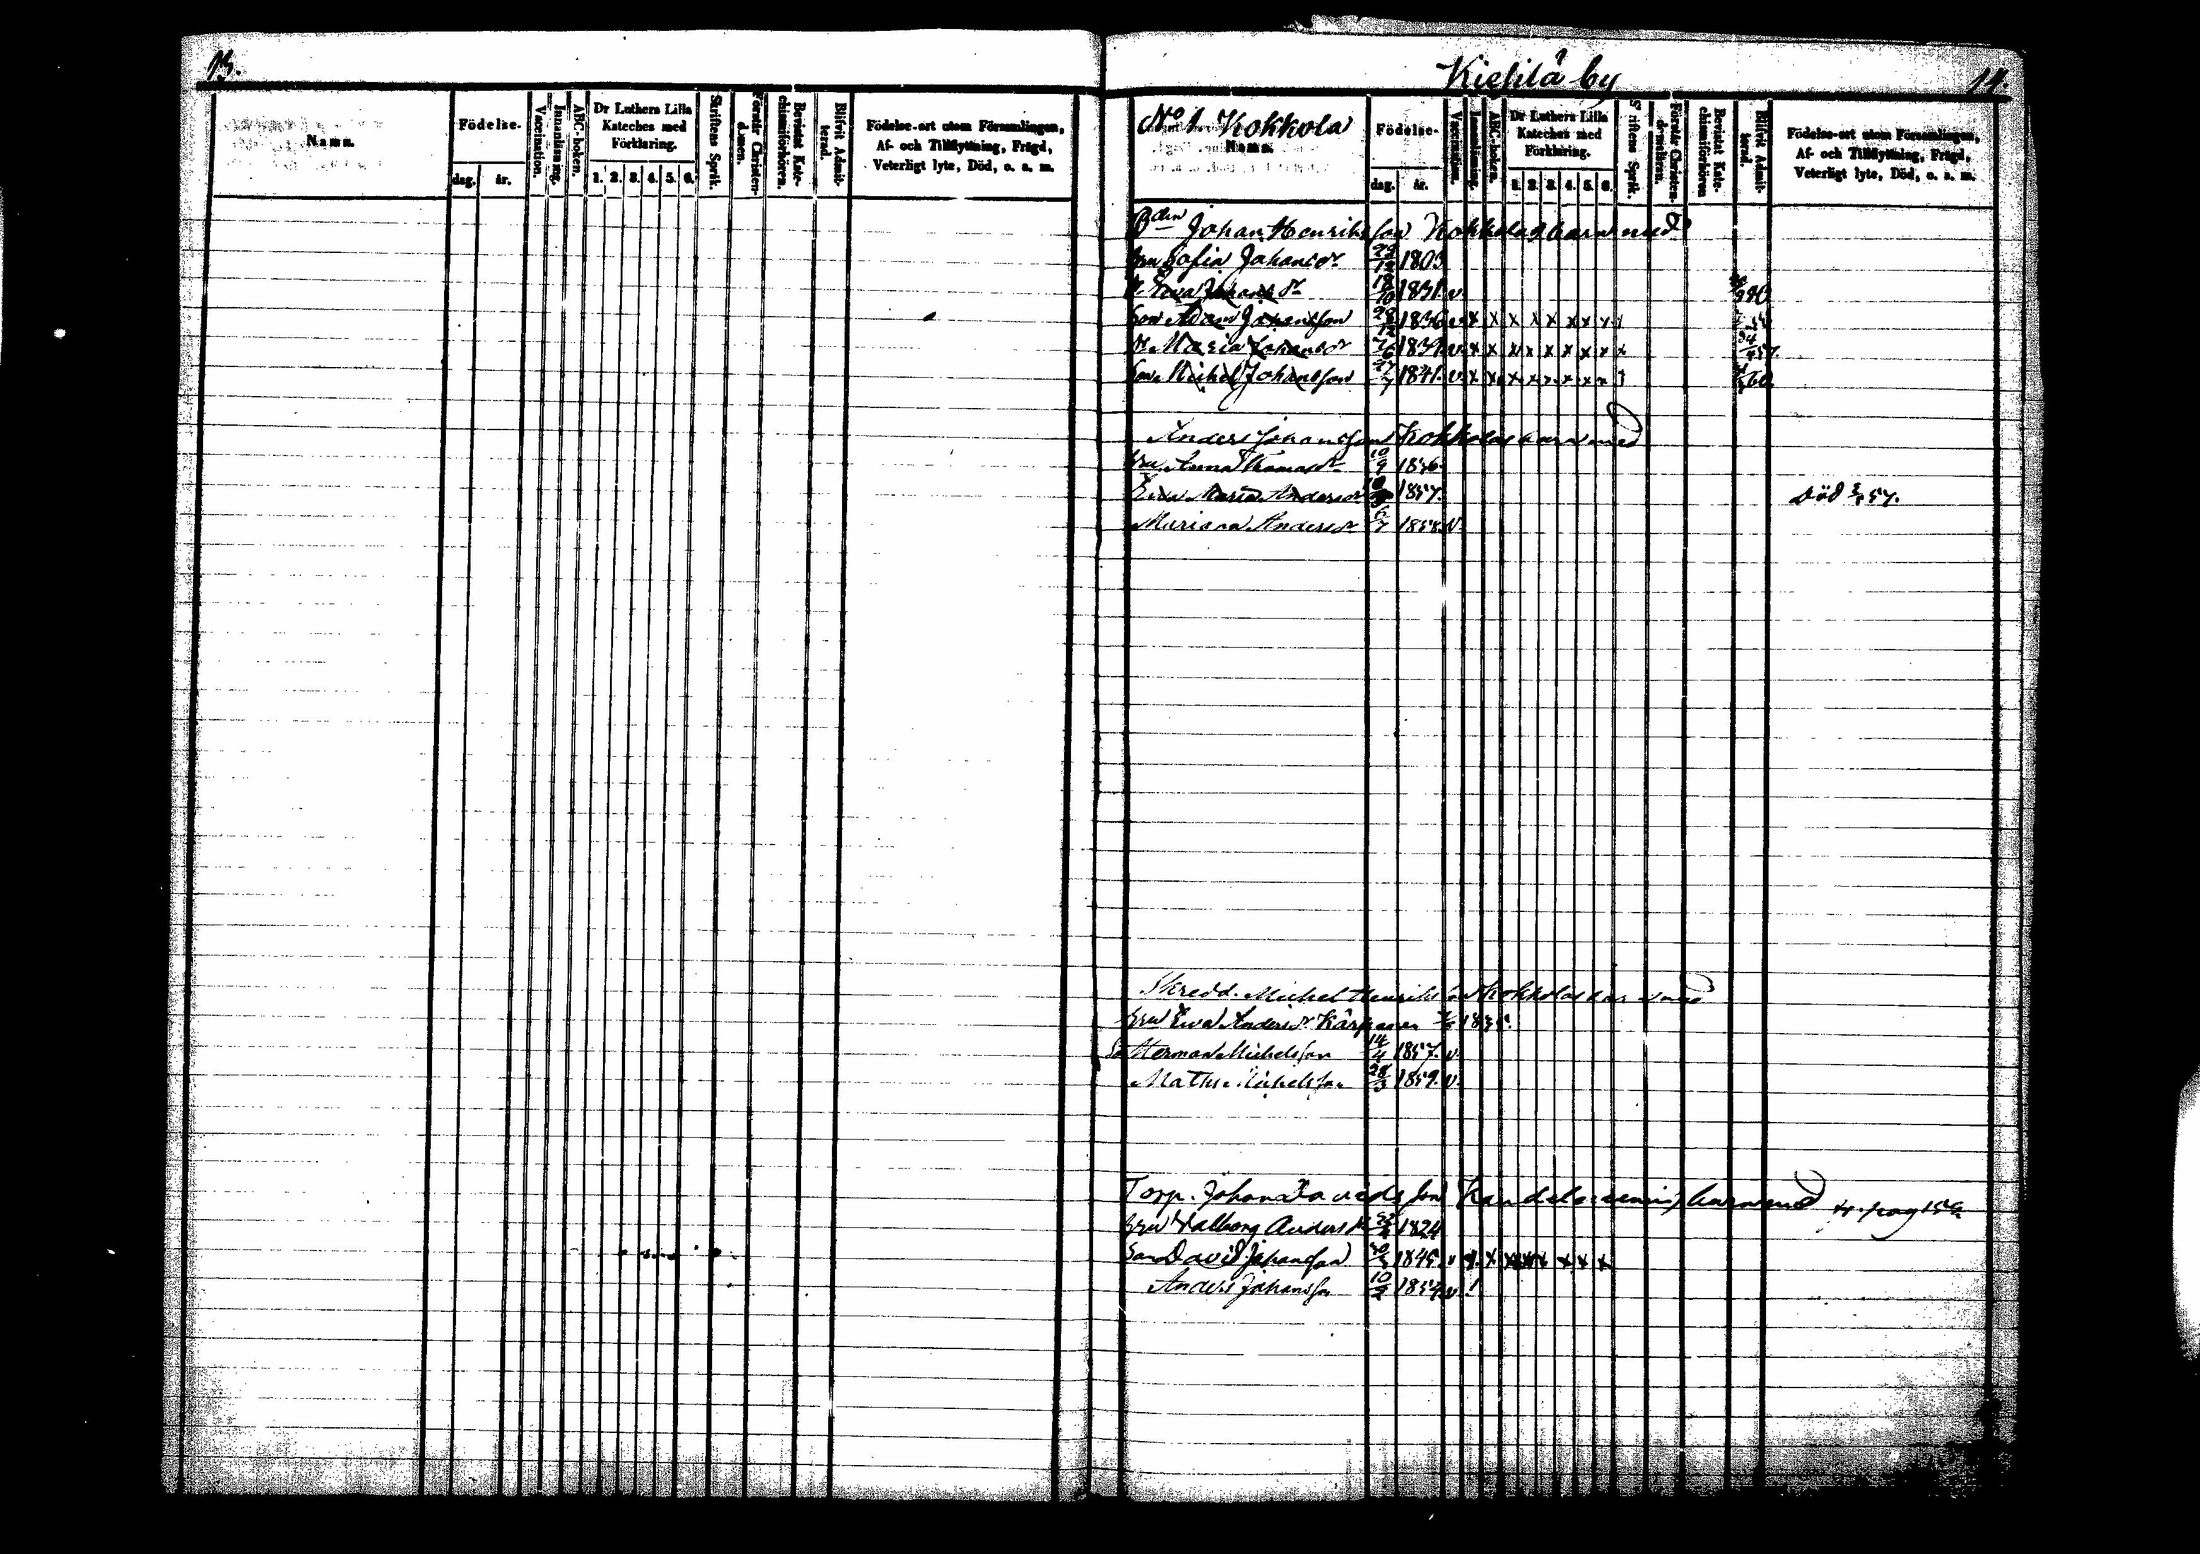 13.
Namn.
Födelse-
dag. år.
Vaccination.
Innanläsning.
ABC-boken.
Dr Luthers Lilla
Kateches med
Förklaring.
1. 2. 3. 4. 5. 6.
Skriftens Språk.
Förstår Christen-
domen.
Bevistat Kate-
chismiförhören.
Blifvit Admit-
terad.
Födelse-ort utom Församlingen,
Af- och Tillflyttning, Frägd,
Veterligt lyte, Död, o. s. m.
Kiehilä by
14.
No 1 Kokkola
Namn.
Födelse-
dag. år.
Vaccination.
Innanläsning.
ABC-boken.
Dr Luthers Lilla
Kateches med
Förklaring.
1. 2. 3. 4. 5. 6.
Skriftens Språk.
Förstår Christen-
domen.
Bevistat Kate-
chismiförhören
Blifvit Admit-
terad.
Födelse-ort utom Församlingen,
Af- och Tillflyttning, Frägd,
Veterligt lyte, Död, o. s. m.
Bden Johan Henriksson Kokkolas barn med
hu Sofia Johansdr 1803
Ewa Johansdr 1831 v.
Son Adam Johansson 28/12 1836 v x x x x x x x x
Dr Maria Johansdr 7/6 1839 v x x x x x x x x x
Son Michel Johansson 27/7 1841. v x x x x x x x x
Anders Johanssons Kokkolas barn med
hu Anna Thomasdr 10/9 1836
Ewa Maria Andersdr 1857. Död 57.
Mariana Andersdr 6/7 1858. v.
Skredd. Michel Henriksson Kokkolas barn med
hu Ewa Andersdr Kärpänen 1835.
So Herman Michelsson 14/4 1857. v.
Maths Michelsson 28/3 1859. v.
Torp. Johan Davidsson barn med pag 152
hu Walborg Andersdr 1824
Son David Johansson 1845. v x x x x x x x x
Anders Johansson 10/2 1854 v !